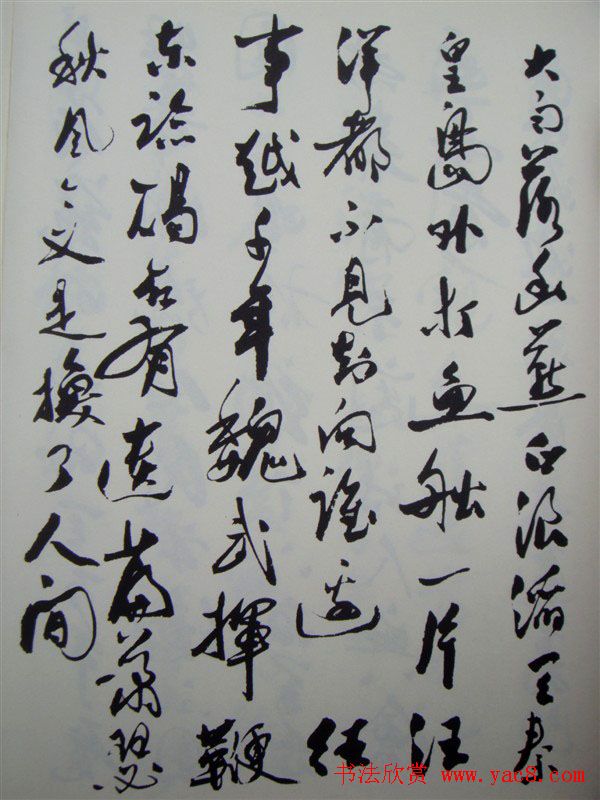 大雨落幽燕白浪滔天秦
皇島外打魚船一片汪
洋都不見知向誰邊往
事越千年魏武揮鞭
東臨碣石有遺篇蕭瑟
秋風今又是換了人間
书法欣赏 www.yac8.com